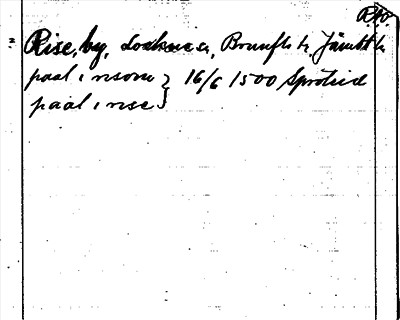 Rise, by, Lockne s., Brunflo h. Jämtl l.
paal i nsom } 16/6 1500
paal i rise }